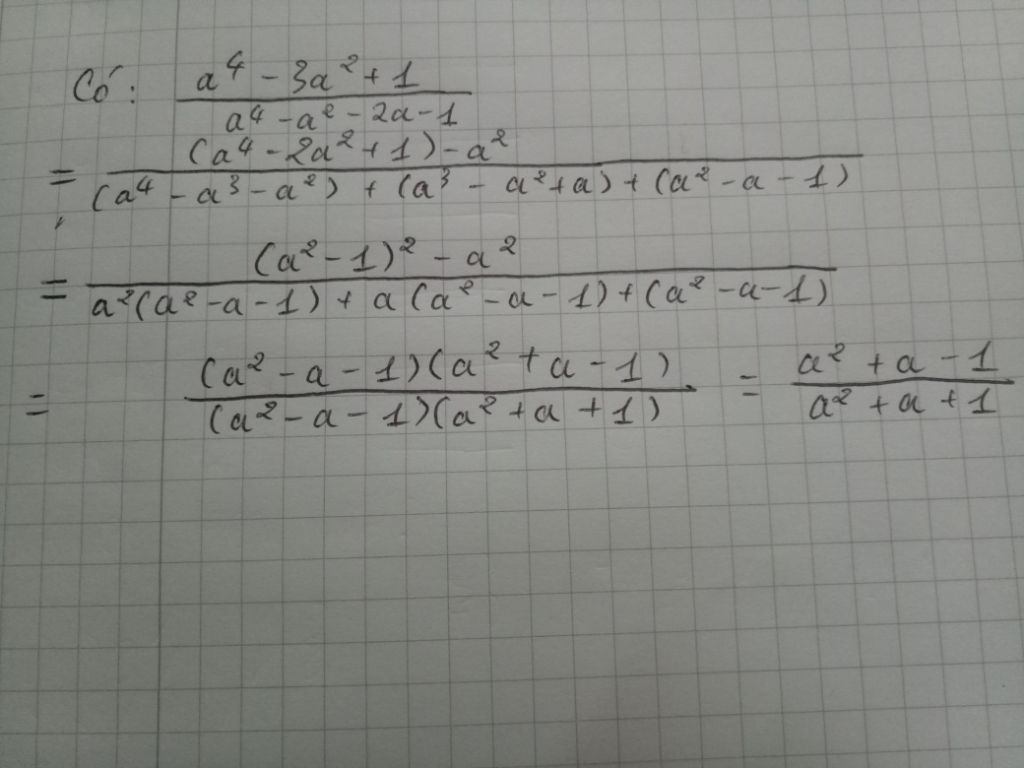 Có: \frac{a^4 - 3a^2 + 1}{a^4 - a^2 - 2a - 1}
= \frac{(a^4 - 2a^2 + 1) - a^2}{(a^4 - a^3 - a^2) + (a^3 - a^2 + a) + (a^2 - a - 1)}
= \frac{(a^2 - 1)^2 - a^2}{a^2(a^2 - a - 1) + a(a^2 - a - 1) + (a^2 - a - 1)}
= \frac{(a^2 - a - 1)(a^2 + a - 1)}{(a^2 - a - 1)(a^2 + a + 1)} = \frac{a^2 + a - 1}{a^2 + a + 1}